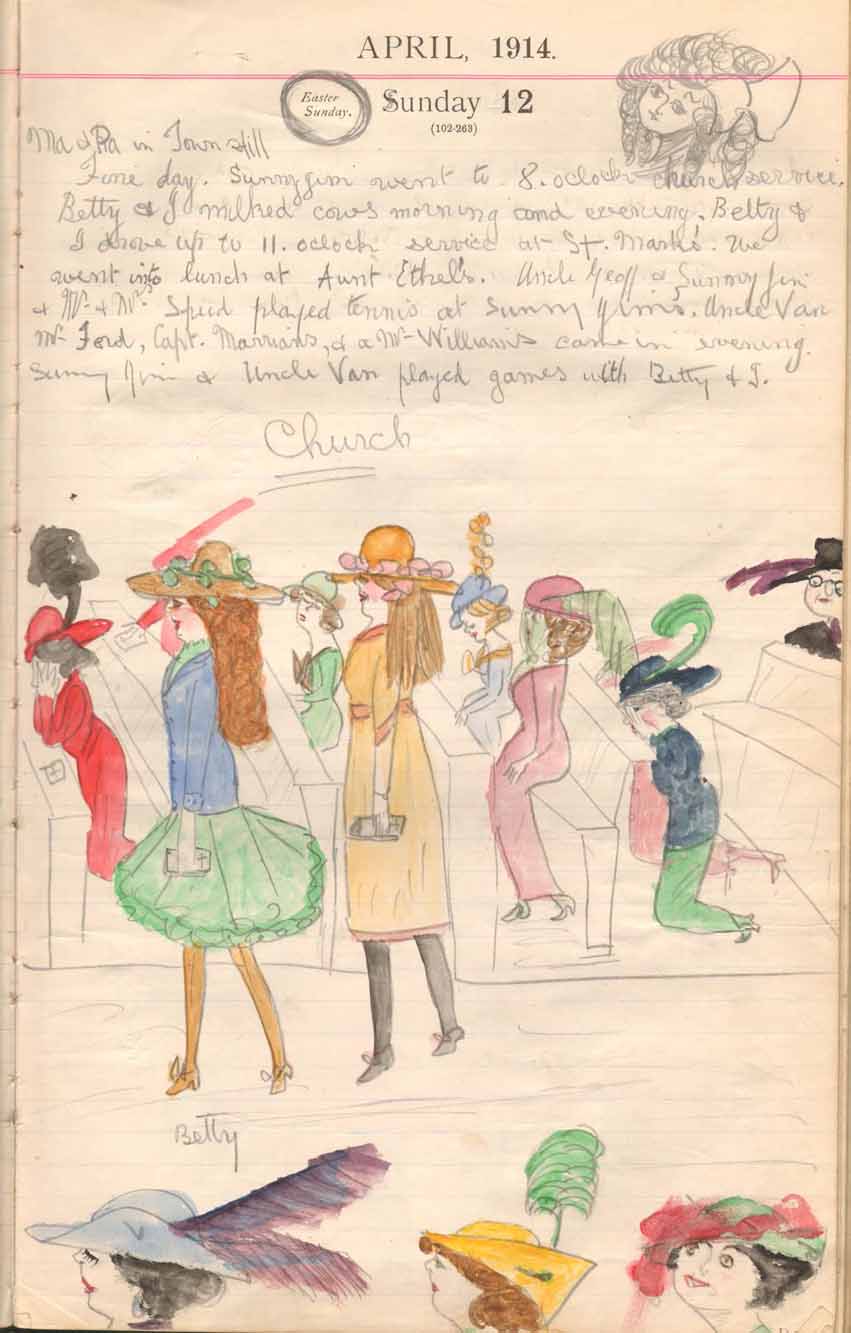 APRIL, 1914.
Easter
Sunday.
Sunday 12
(102-263)
Ma & Pa in Town still
Fine day. Sunny Jim went to 8. oclock church service.
Betty & I milked cows morning and evening. Betty &
I drove up to 11. oclock service at St. Marks. We
went into lunch at Aunt Ethel's. Uncle Geoff & Sunny Jim
& Mr. & Mrs Speed played tennis at Sunny Jim's. Uncle Van
Mr Ford, Capt. Marrians, & a Mr Williams came in evening.
Sunny Jim & Uncle Van played games with Betty & I.
Church
Betty